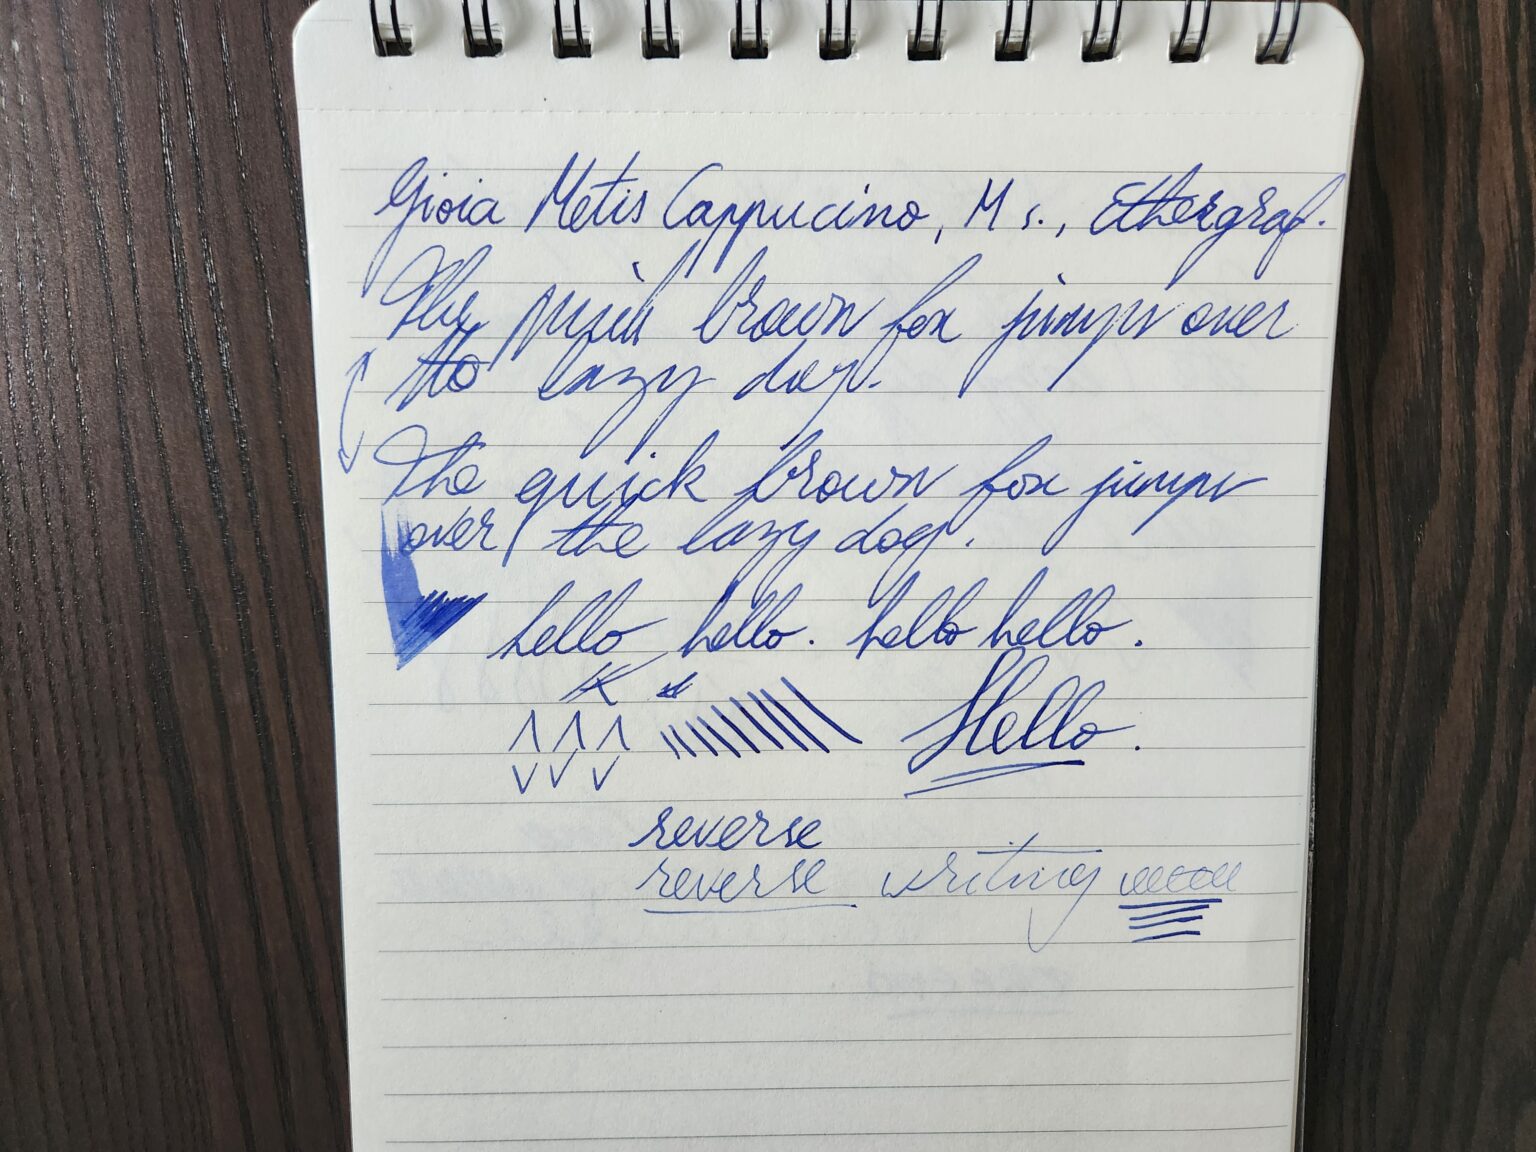 Gioia Metis Cappucino, M s., Ethergraf.
The quick brown fox jumps over
the lazy dog.
The quick brown fox jumps
over the lazy dog.
hello hello. hello hello.
Hello.
reverse
reverse writing